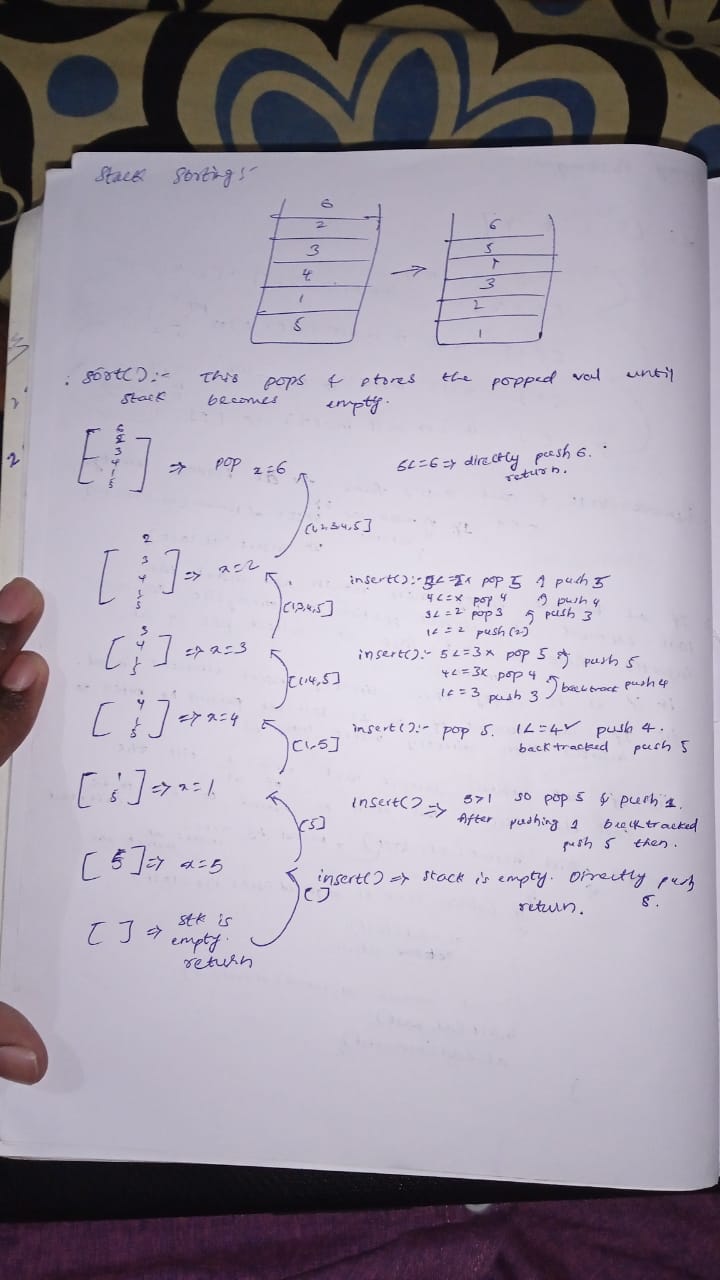 Stack Sorting:-
6
2
3
4
1
5
→
6
5
3
2
1
: sort():- This pops & stores the popped val until
stack becomes empty.
[6 2 3 4 1 5] ⇒ pop x=6
6<=6 ⇒ directly push 6.
return.
[1,2,3,4,5]
[2 3 4 1 5] ⇒ x=2
insert():- 5<=2x pop 5 push 5
4<=x pop 4 push 4
3<=2 pop 3 push 3
1<=2 push(2)
[1,3,4,5]
[3 4 1 5] ⇒ x=3
insert():- 5<=3x pop 5 push 5
4<=3x pop 4
1<=3 push 3 backtrack push 4
[1,4,5]
[4 1 5] ⇒ x=4
insert():- pop 5. 1<=4✓ push 4.
backtracked push 5
[1,5]
[1 5] ⇒ x=1
insert() ⇒ 5>1 so pop 5 & push 1.
After pushing 1 backtracked
push 5 then.
[5]
[5] ⇒ x=5
insert() ⇒ stack is empty. Directly push
5.
return.
[]
[ ] ⇒ stk is
empty.
return
2